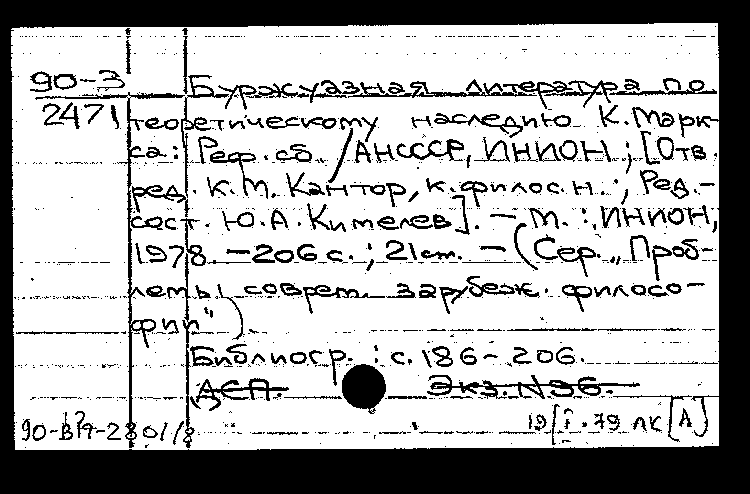 90-3 Буржуазная литература по
2471 теоретическому наследию К. Марк-
са: Реф. сб. / АНСССР, ИНИОН ; [Отв.
ред. К.М. Кантор, к.филос.н. ; Ред.-
сост. Ю.А. Кимелев]. — М. : ИНИОН,
1978. — 206 с. ; 21 см. — (Сер. „Проб-
лемы соврем. зарубеж. филосо-
фии").
Библиогр. : с. 186-206.
ДСП. Экз. N 96.
19 79 ЛК [А]